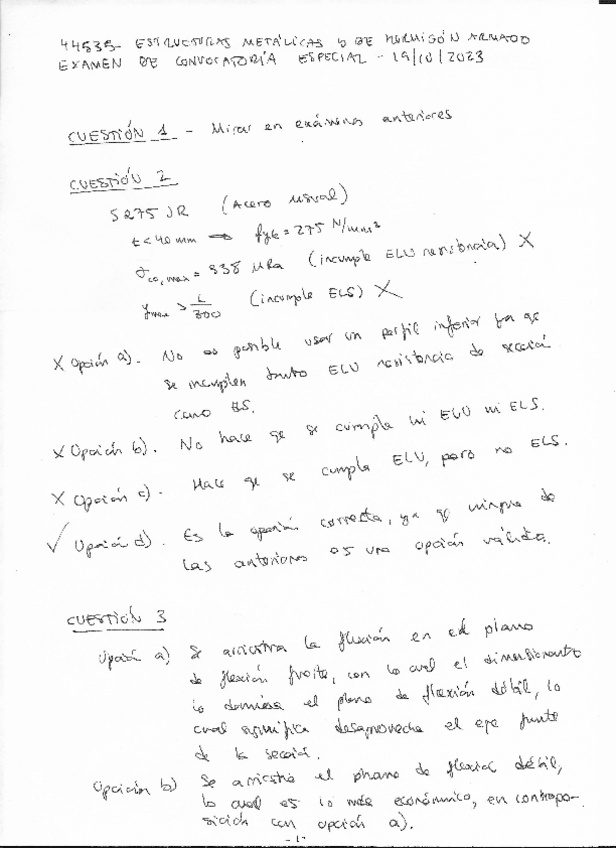 44535- ESTRUCTURAS METÁLICAS Y DE HORMIGÓN ARMADO
EXAMEN DE CONVOCATORIA ESPECIAL - 19/10/2023
CUESTIÓN 1 - Mirar en exámenes anteriores
CUESTIÓN 2
S275 JR (Acero usual)
t<40mm → fyk = 275 N/mm²
σco,max = 338 MPa (incumple ELU resistencia) X
ymax > L/300 (incumple ELS) X
X Opción a). No es posible usar un perfil inferior ya qe
se incumplen tanto ELU resistencia de sección
como ELS.
X Opción b). No hace qe se cumpla ni ELU ni ELS.
X Opción c). Hace qe se cumpla ELU, pero no ELS.
✓ Opción d). Es la opción correcta, ya qe ninguna de
las anteriores es una opción válida.
CUESTIÓN 3
Opción a) Se arriostra la flexión en el plano
de flexión fuerte, con lo cual el dimensionante
lo el plano de flexión débil, lo
cual significa desaprovecha el eje fuerte
de la sección.
Opción b) Se arriostra el plano de flexión débil,
lo cual es lo más económico, en contrapo-
sición con opción a).
-1-